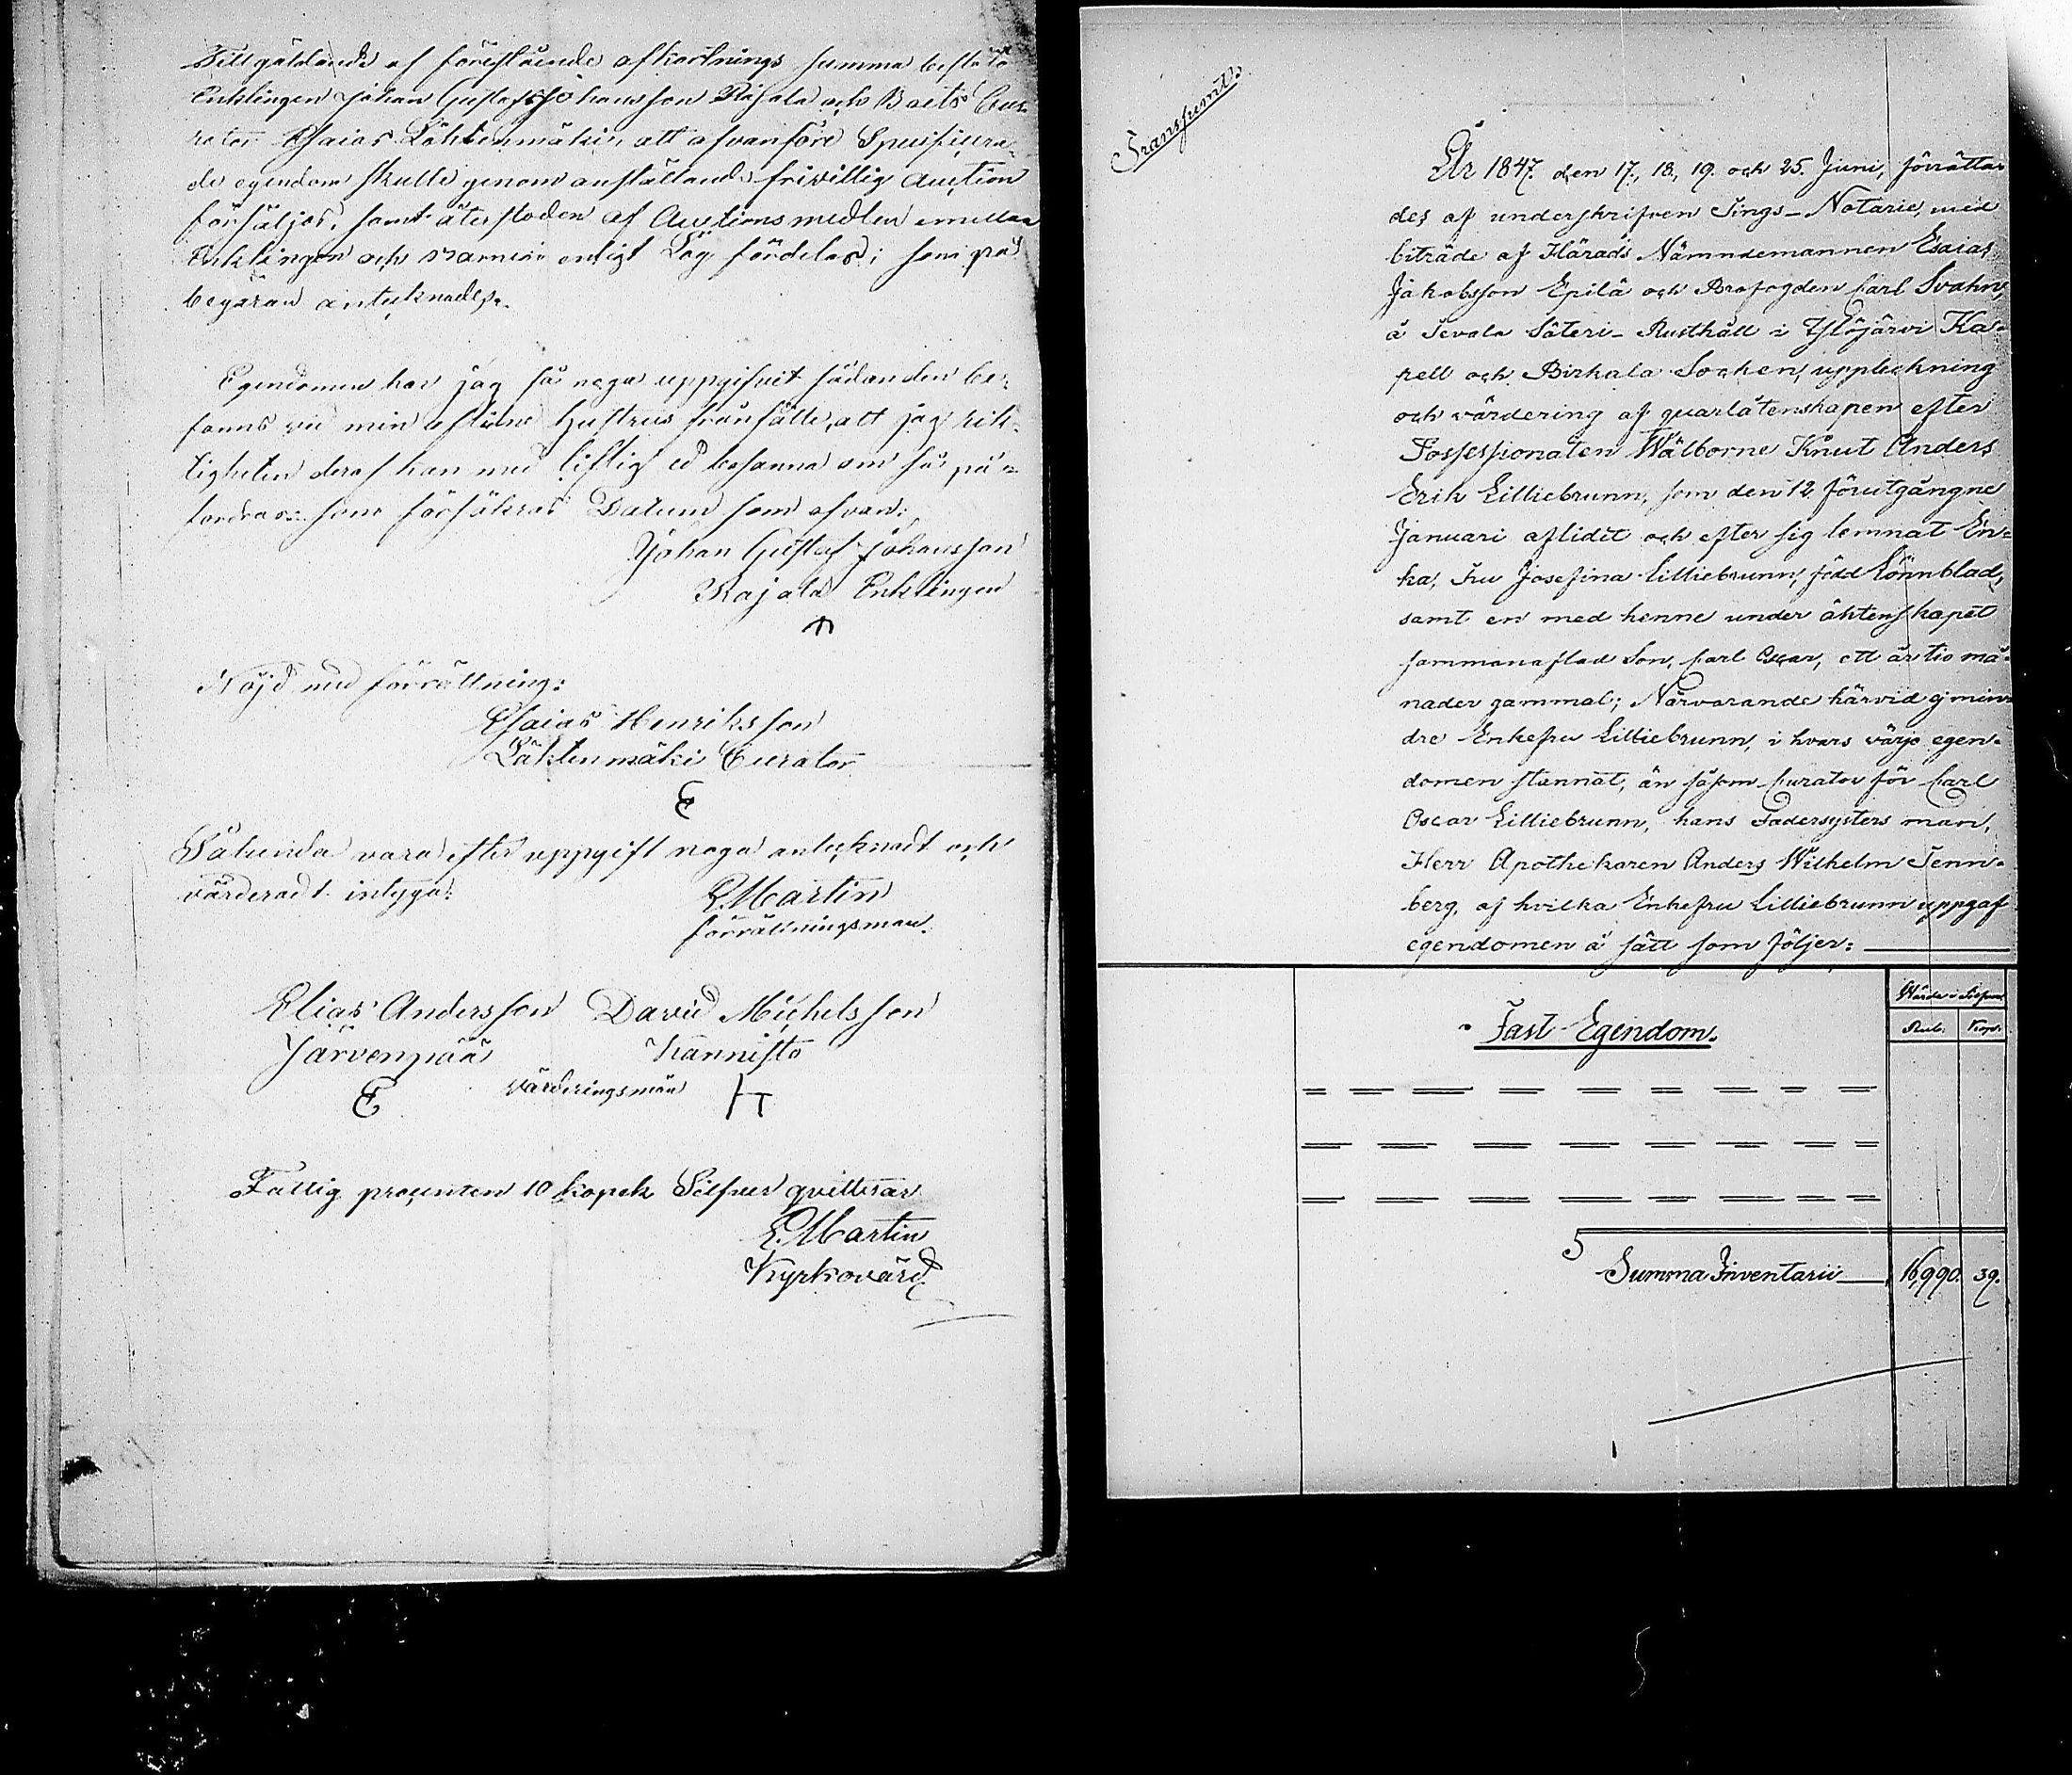 Till gäldande af förestående afkortnings summa bestöto
Enklingen Johan Gustaf Johansson Rajala och Barets Cu-
rator Esaias Lähtenmäki, att ofvanföre Specificera-
de egendom skulle genom anställande frivillig Auction
försäljas, samt återstoden af Auctions medlen emellan
Enklingen och barnen enligt Lag fördelas; som på
begäran antecknades.
Egendomen har jag så noga uppgifvit sådan den be-
fanns vid min aflidne hustrus frånfälle, att jag rik-
tigheten deraf kan med liflig ed besanna om så på-
fordras; som försäkras Datum som ofvan:
Johan Gustaf Johansson
Rajala Enklingen
Nöjd med förrättning:
Esaias Henriksson
Lähtenmäki Curator
E
Sålunda vara efter uppgift noga antecknadt och
värderadt intyga:
E. Martin
förrättningsman.
Elias Andersson David Michelsson
Järvenpää Kännistö
E värderingsmän
Fattig procenten 10 kopek Silfver qvitterar
E. Martin
Kyrkovärd
Transsumt.
År 1847. den 17., 18., 19. och 25. Juni, förrätta-
des af underskrifven Tings-Notarie, med
biträde af Härads Nämndemannen Esaias
Jakobsson Epilä och Brofogden Carl Svahn,
å Sevala Säteri-Rusthåll i Ylöjärvi Ka-
pell och Birkala Socken, uppteckning
och värdering af quarlåtenskapen efter
Possessionaten Wälborne Knut Anders
Erik Lilliebrunn, som den 12 förutgångne
Januari aflidit och efter sig lemnat En-
ka, Fru Josefina Lilliebrunn, född Lönnblad,
samt en med henne under äktenskapet
sammanaflad Son, Carl Oscar, ett år tio må-
nader gammal; Närvarande härvid ej min-
dre Enkefru Lilliebrunn, i hvars värjo egen-
domen stannat, än såsom Curator för Carl
Oscar Lilliebrunn, hans Fadersysters man,
Herr Apothekaren Anders Wilhelm Tenn-
berg, af hvilka Enkefru Lilliebrunn uppgaf
egendomen å sätt som följer:
Värde i Silfver
Rub. Kop.
Fast Egendom.
Summa Inventarii 16,990. 39.